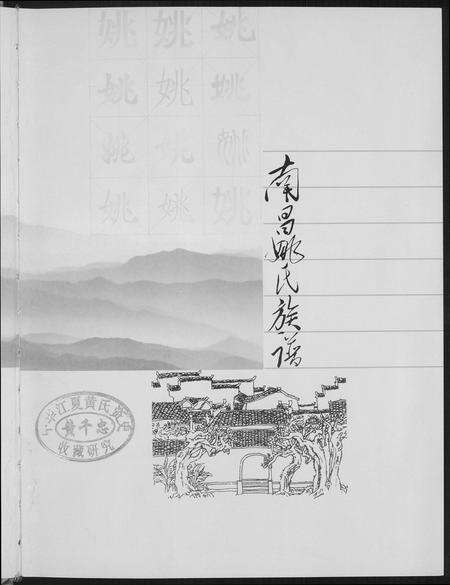 姚 姚 姚
姚 姚 姚
姚 姚 姚
姚 姚 姚
南昌姚氏族谱
江夏黄氏
收藏研究